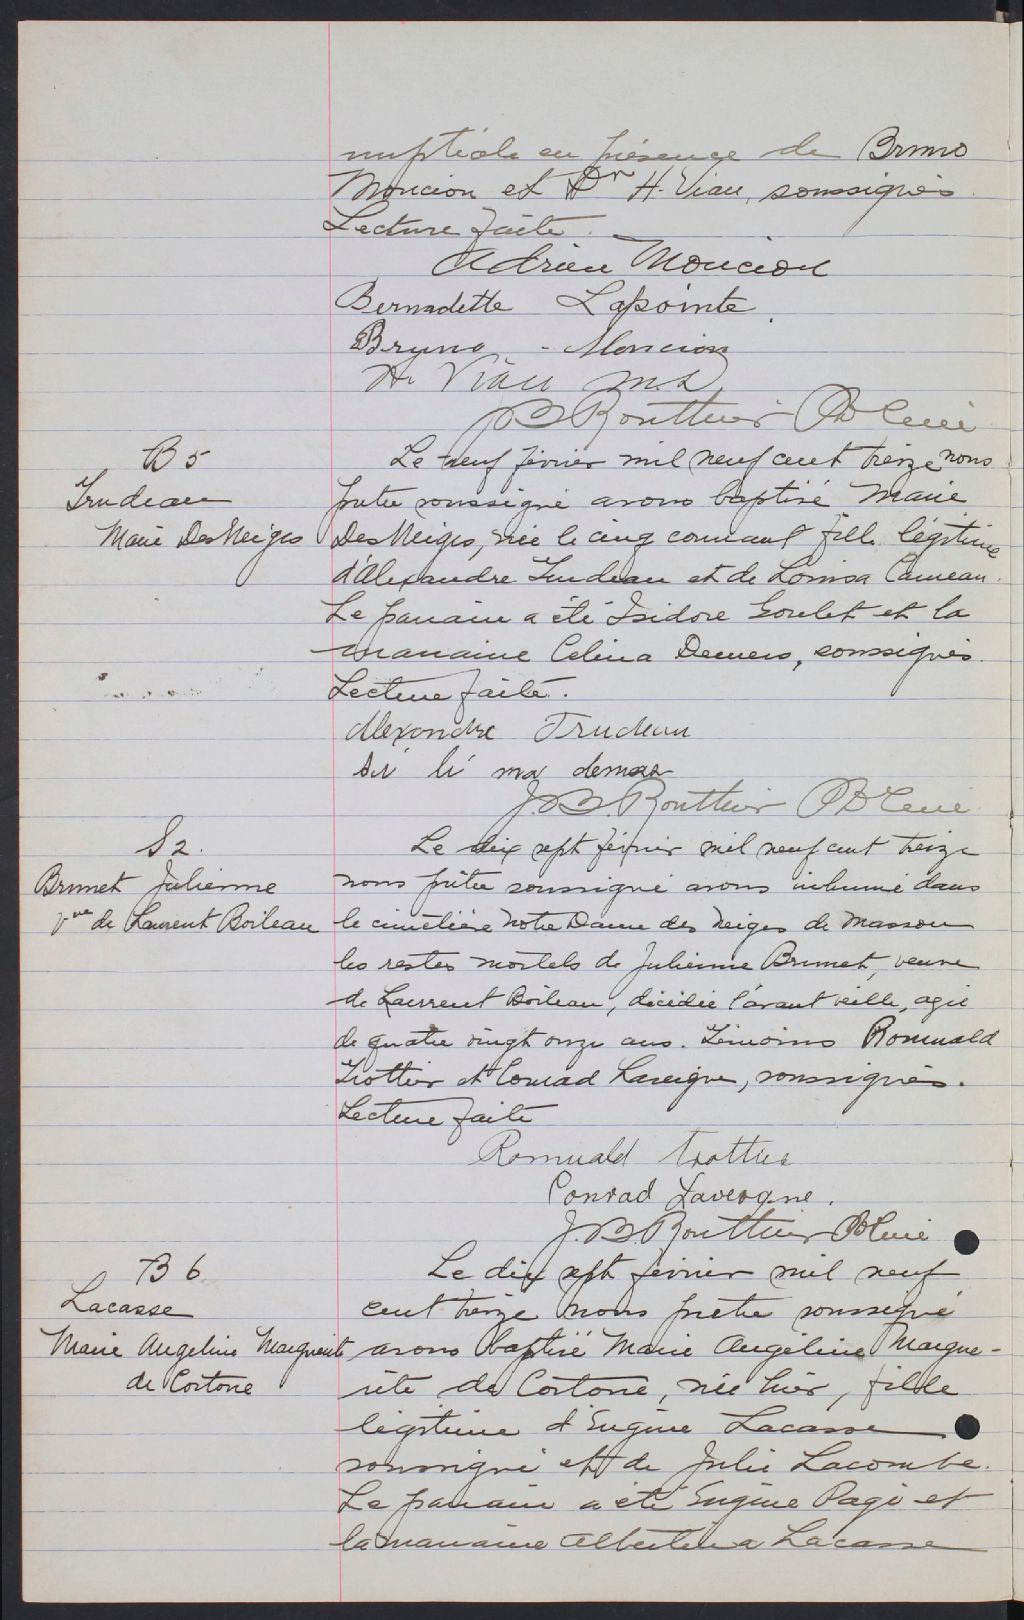 nuptiale en présence de Bruno
Moncion et Dr H. Viau, soussignés.
Lecture faite.
Adrien Moncion
Bernadette Lapointe
Bruno Moncion
H. Viau M.D.
JB Routhier Ptre Curé
B 5
Trudeau
Marie Des Neiges
Le neuf février mil neuf cent treize nous
prêtre soussigné avons baptisé Marie
Des Neiges, née le cinq courant fille légitime
d'Alexandre Trudeau et de Louisa Carneau.
Le parrain a été Isidore Goulet et la
marraine Celina Demers, soussignés.
Lecture faite.
Alexandre Trudeau
Sé li na demers
J.B. Routhier Ptre Curé
S 2.
Brunet Julienne
Vve de Laurent Boileau
Le dix sept février mil neuf cent treize
nous prêtre soussigné avons inhumé dans
le cimetière Notre Dame des Neiges de Masson
les restes mortels de Julienne Brunet, veuve
de Laurent Boileau, décédée l'avant veille, agée
de quatre vingt onze ans. Témoins Romuald
Trottier et Conrad Lavergne, soussignés.
Lecture faite
Romuald Trottier
Conrad Lavergne.
J.B. Routhier Ptre Curé
B 6
Lacasse
Marie Angeline Marguerite
de Cortone
Le dix sept février mil neuf
cent treize nous prêtre soussigné
avons baptisé Marie Angéline Margue-
rite de Cortone, née hier, fille
légitime d'Eugène Lacasse
soussigné et de Julie Lacombe.
Le parrain a été Eugène Pagé et
la marraine Albertina Lacasse